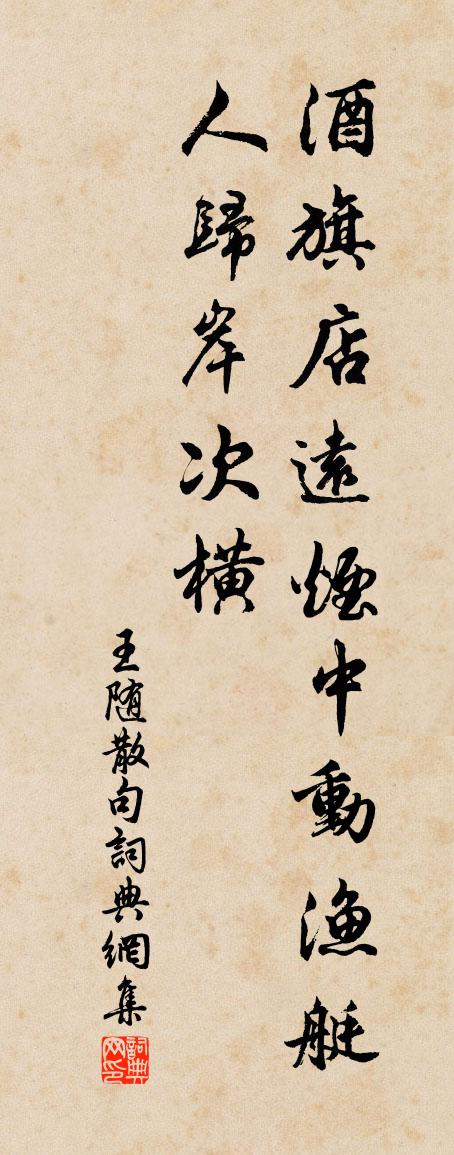 酒旗店遠煙中動漁艇
人歸岸次橫
王随散句詞典網集
詞典网印